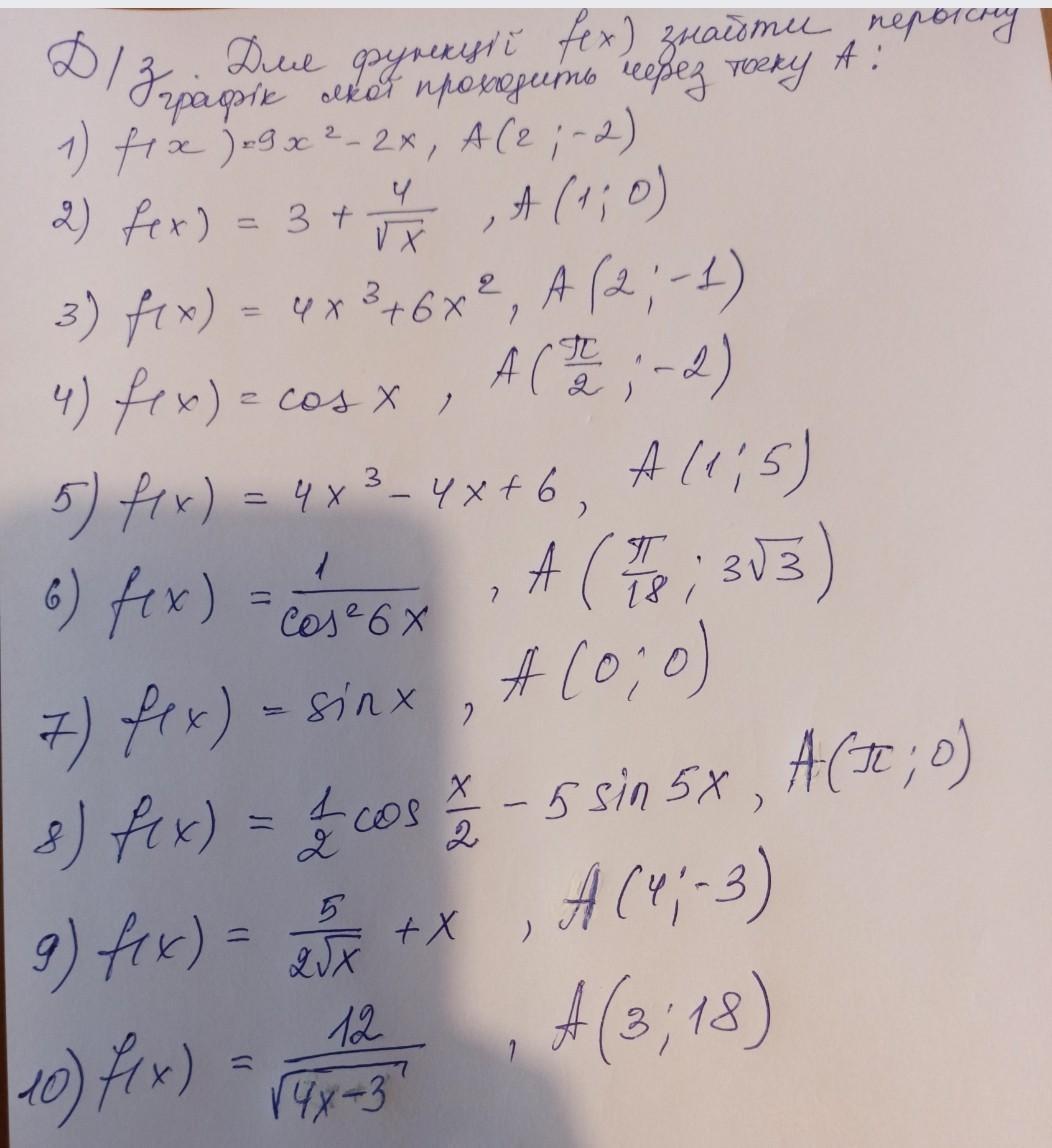 Д/з. Для функції f(x) знайти первісну
графік якої проходить через точку А:
1) f(x) = 9x² - 2x, A(2; -2)
2) f(x) = 3 + 4/√x, A(1; 0)
3) f(x) = 4x³ + 6x², A(2; -1)
4) f(x) = cos x, A(π/2; -2)
5) f(x) = 4x³ - 4x + 6, A(1; 5)
6) f(x) = 1/cos²6x, A(π/18; 3√3)
7) f(x) = sin x, A(0; 0)
8) f(x) = 1/2 cos x/2 - 5 sin 5x, A(π; 0)
9) f(x) = 5/(2√x) + x, A(4; -3)
10) f(x) = 12/√(4x-3), A(3; 18)